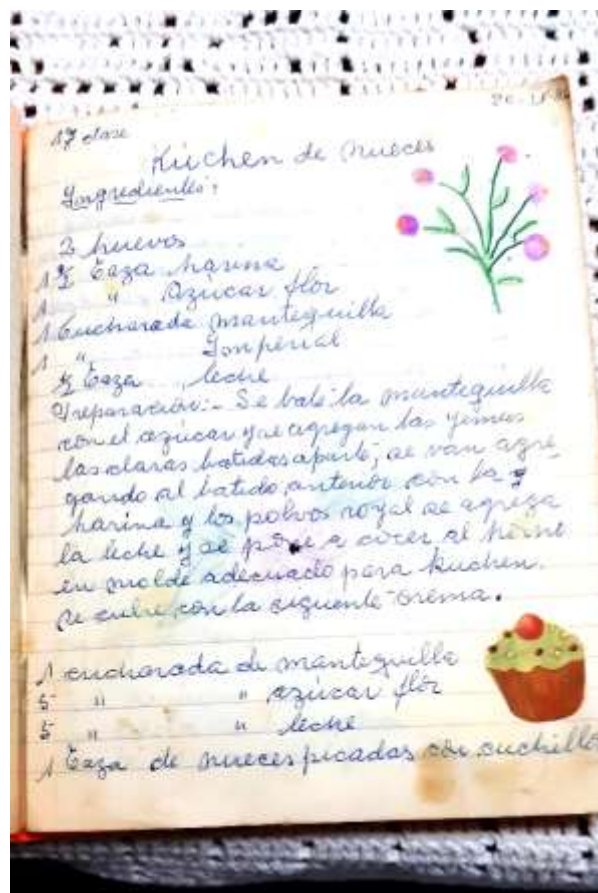 17 clase
Kuchen de nueces
Ingredientes:
2 huevos
1 ½ taza harina
1 " azúcar flor
1 cucharada mantequilla
1 " Imperial
½ taza leche
Preparación:- Se bate la mantequilla
con el azúcar y se agregan las yemas
las claras batidas aparte, se van agre
gando al batido anterior con la
harina y los polvos royal se agrega
la leche y se pone a cocer al horno
en molde adecuado para kuchen.
Se cubre con la siguiente crema.
1 cucharada de mantequilla
5 " " azúcar flor
5 " " leche
1 taza de nueces picadas con cuchillo